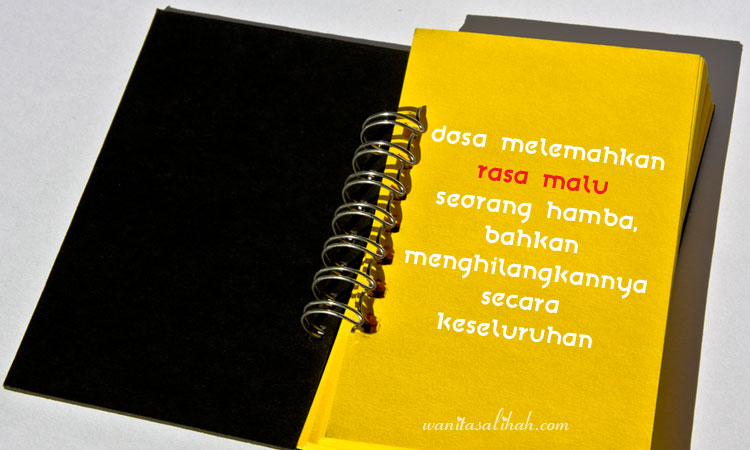 dosa melemahkan
rasa malu
seorang hamba,
bahkan
menghilangkannya
secara
keseluruhan
wanitasalihah.com